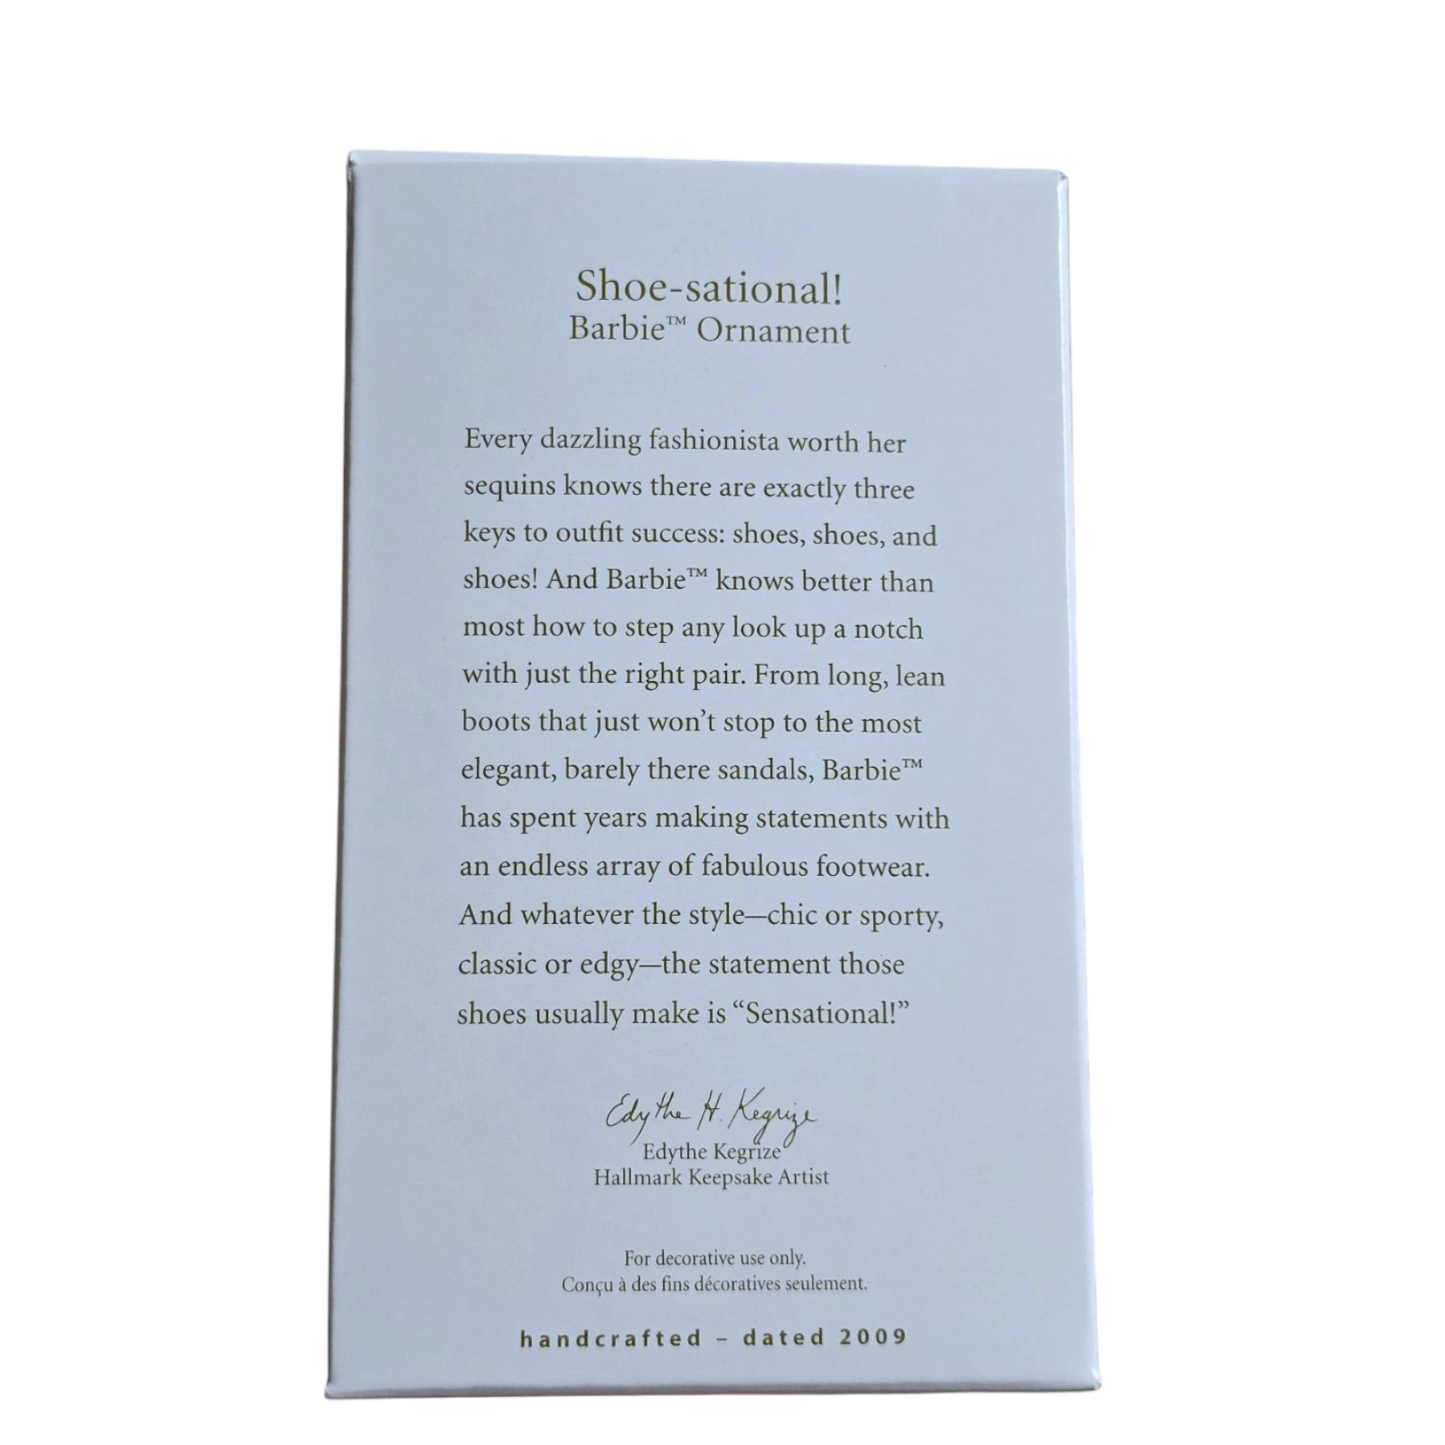 Shoe-sational!
Barbie™ Ornament
Every dazzling fashionista worth her
sequins knows there are exactly three
keys to outfit success: shoes, shoes, and
shoes! And Barbie™ knows better than
most how to step any look up a notch
with just the right pair. From long, lean
boots that just won’t stop to the most
elegant, barely there sandals, Barbie™
has spent years making statements with
an endless array of fabulous footwear.
And whatever the style—chic or sporty,
classic or edgy—the statement those
shoes usually make is “Sensational!”
Edythe H. Kegrize
Edythe Kegrize
Hallmark Keepsake Artist
For decorative use only.
Conçu à des fins décoratives seulement.
handcrafted – dated 2009